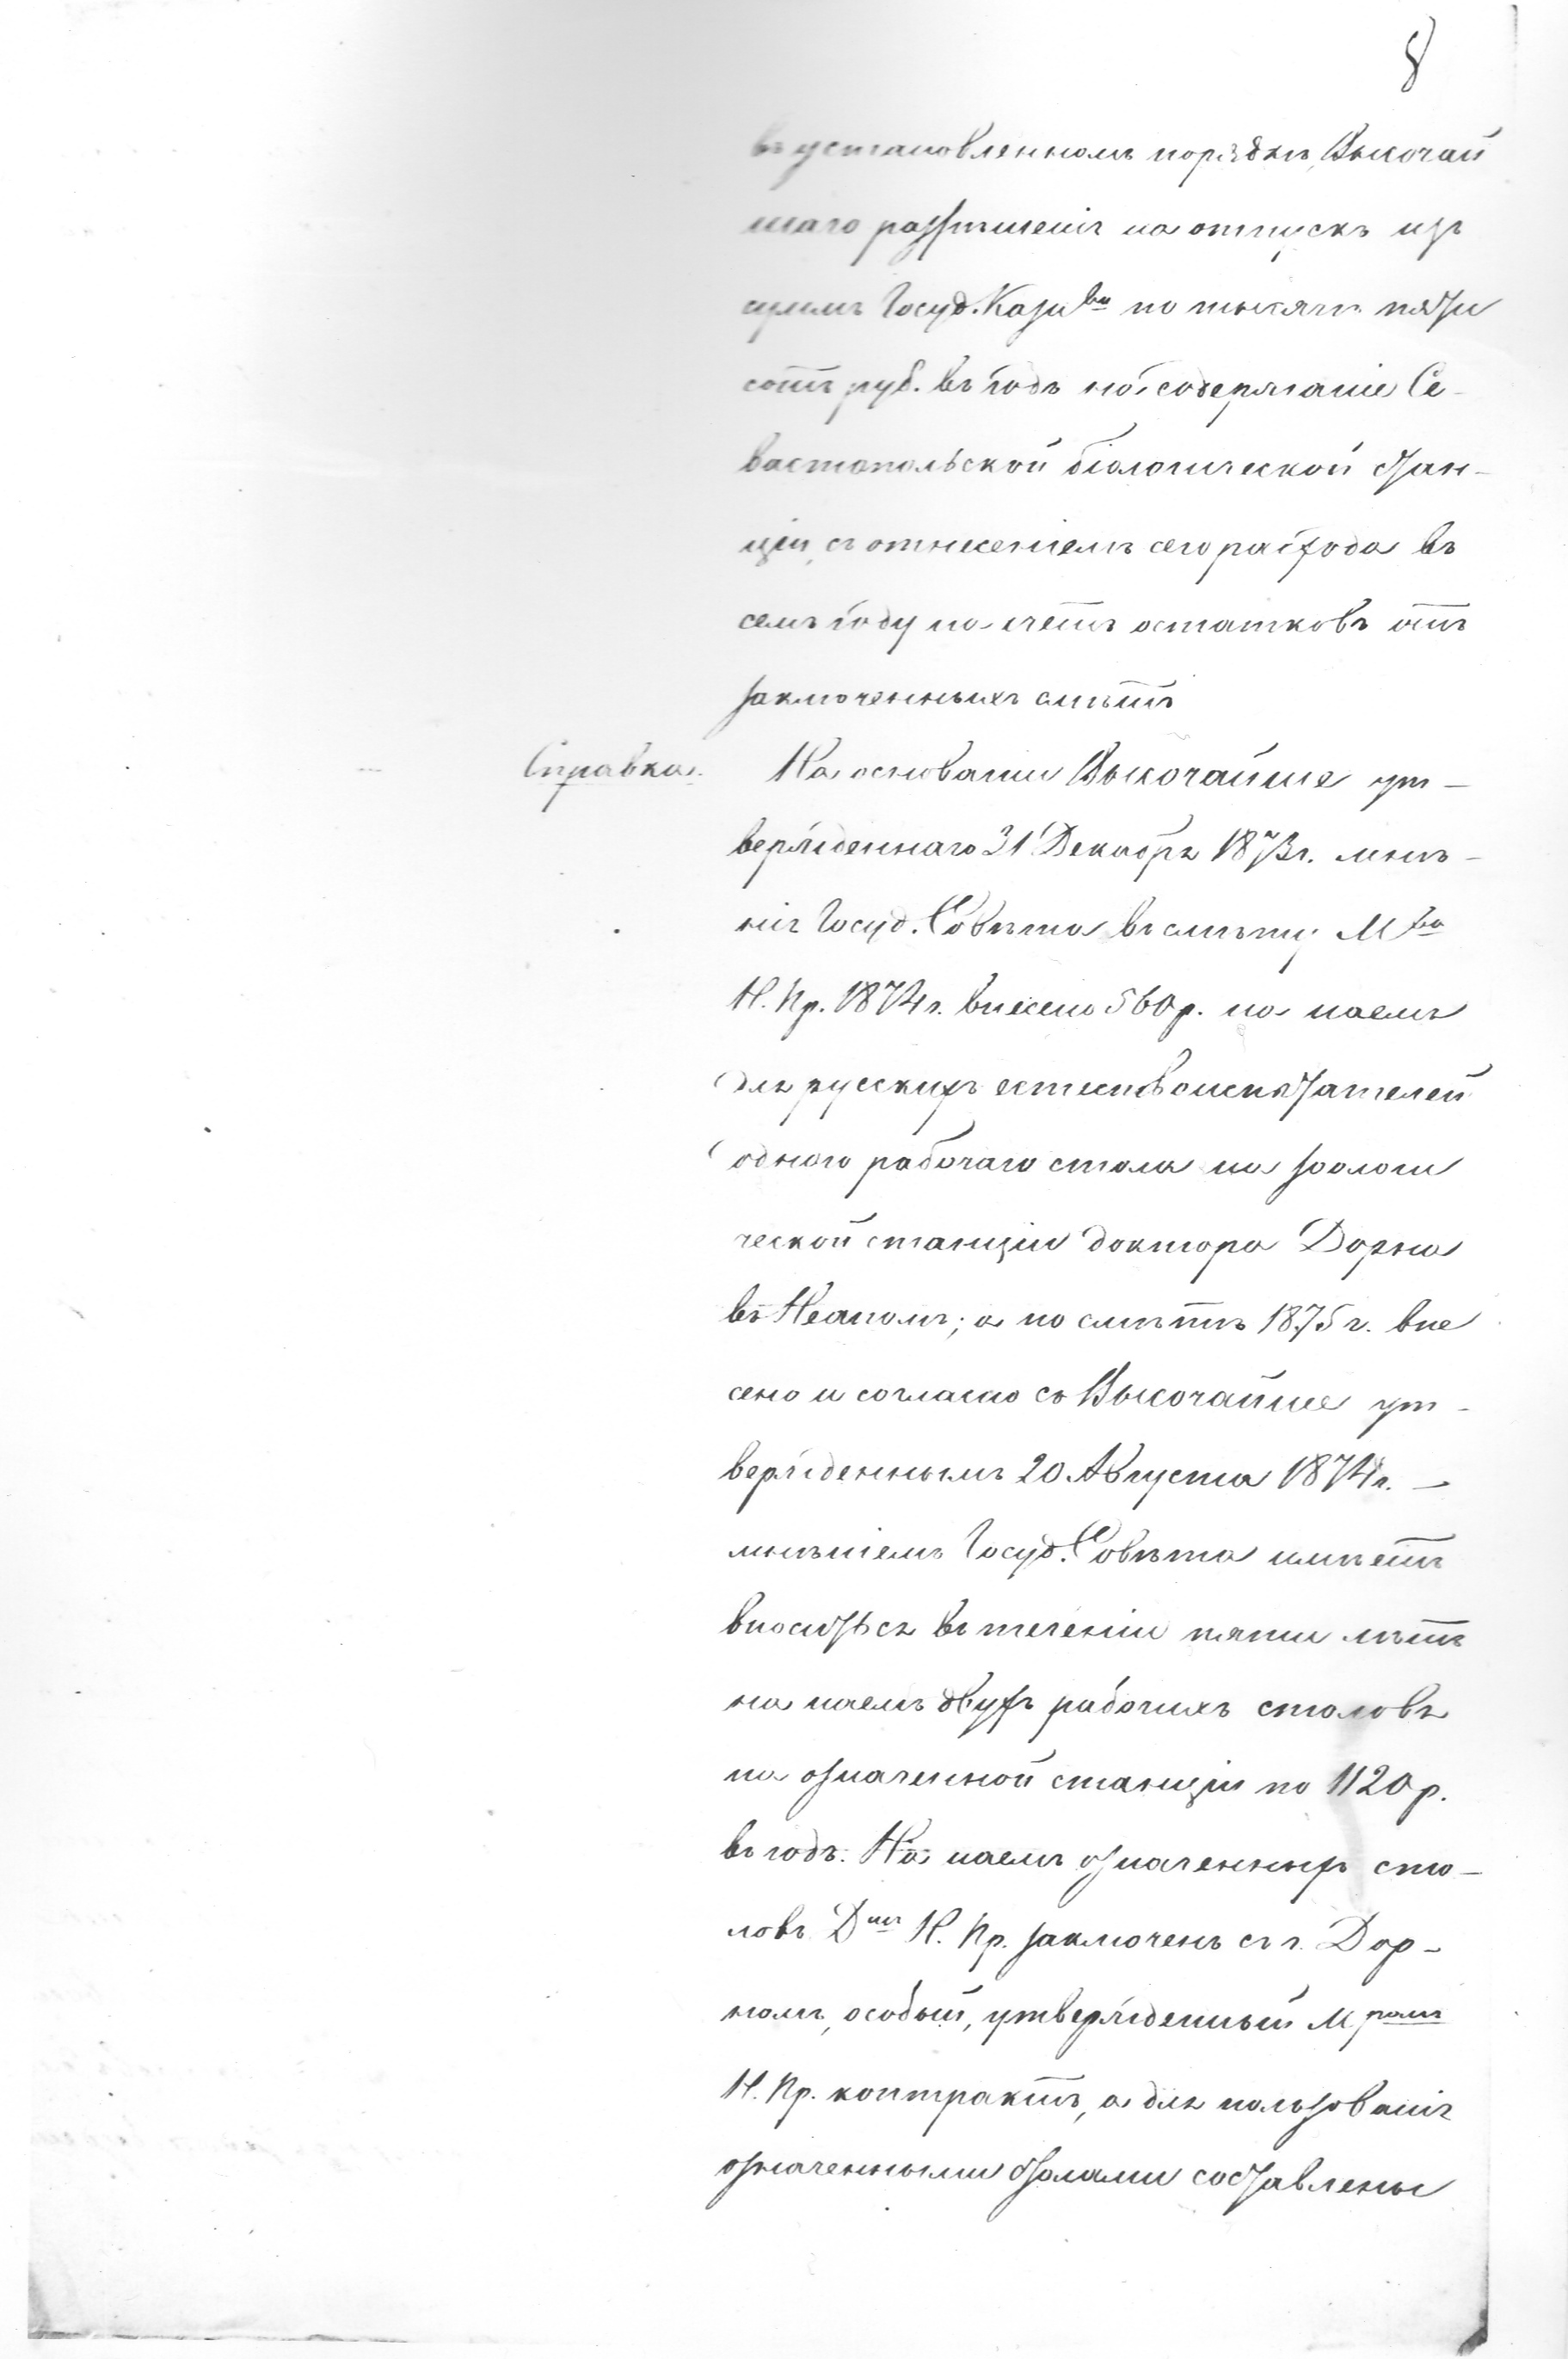 8
въ установленномъ порядкѣ, Высочай
шаго разрѣшенія на отпускъ изъ
суммъ Госуд. Казн^ва по тысячи пяти
сотъ руб. въ годъ на содержаніе Се-
вастопольской біологической стан-
ціи, съ отнесеніемъ сего расхода въ
семъ году на счетъ остатковъ отъ
заключенныхъ смѣтъ
Справка. На основаніи Высочайше ут-
вержденнаго 31 Декабря 1873 г. мнѣ-
нія Госуд. Совѣта въ смѣту М^ва
Н. Пр. 1874 г. внесено 560 р. на наемъ
для русскихъ естествоиспытателей
одного рабочаго стола на зоологи
ческой станціи доктора Дорна
въ Неаполѣ; а по смѣтѣ 1875 г. вне
сено и согласно съ Высочайше ут-
вержденнымъ 20 Августа 1874 г. —
мнѣніемъ Госуд. Совѣта имѣетъ
вноситься въ теченіи пяти лѣтъ
на наемъ двухъ рабочихъ столовъ
на означенной станціи по 1120 р.
въ годъ. На наемъ означенныхъ сто-
ловъ Д^мъ Н. Пр. заключенъ съ г. Дор-
номъ, особый, утвержденный М^ромъ
Н. Пр. контрактъ, а для пользованія
означенными столами составлены